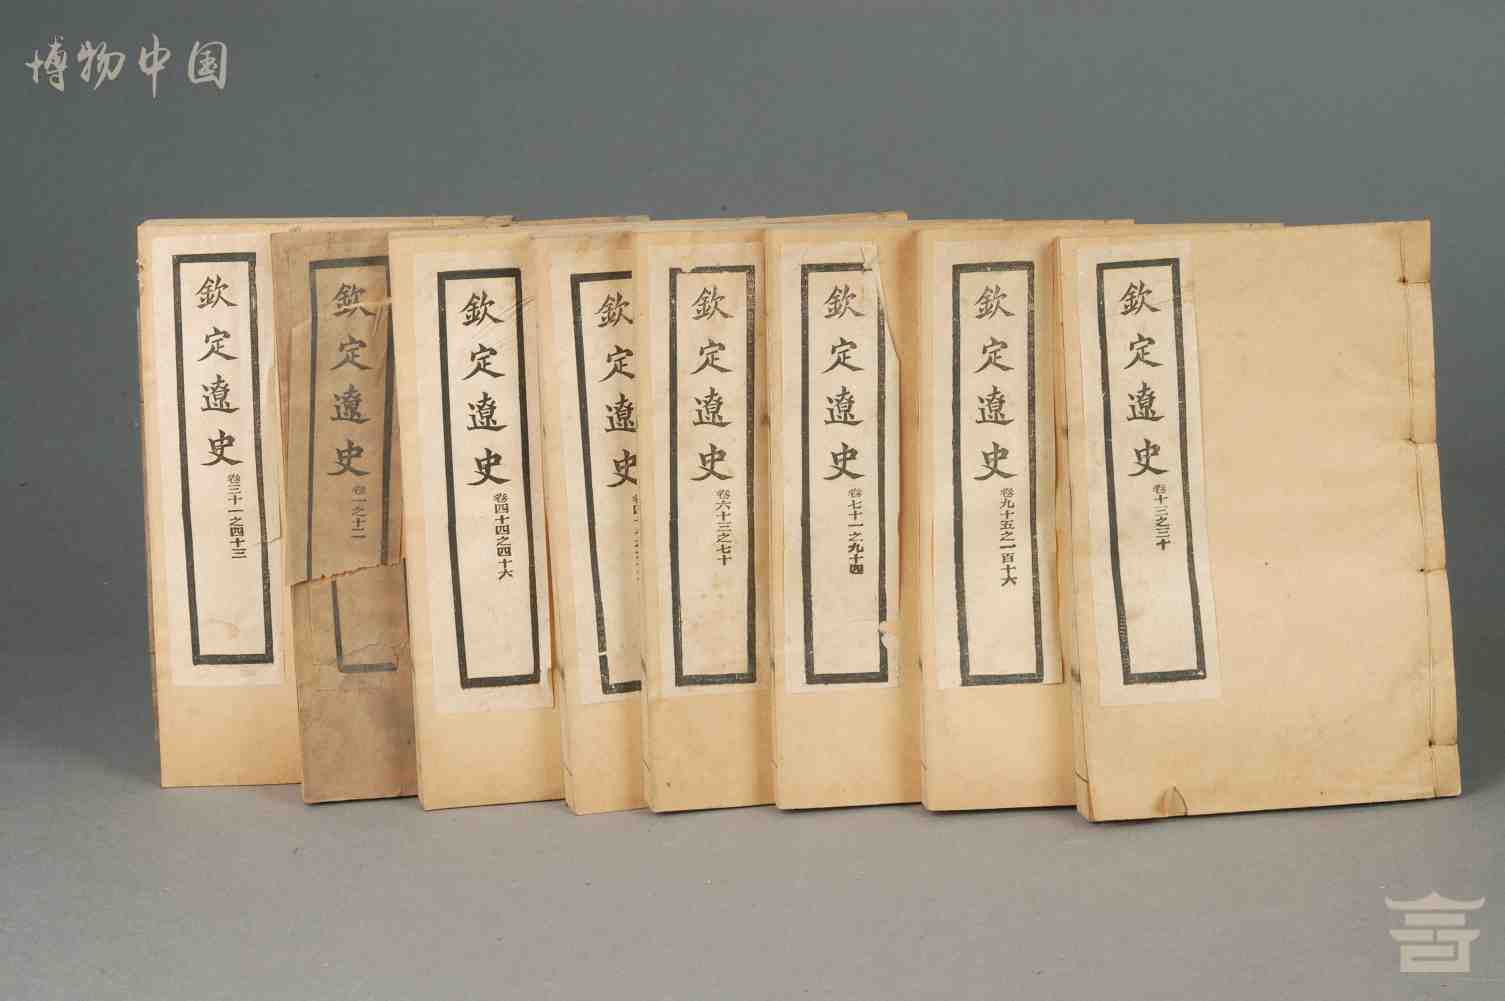 博物中国
欽定遼史
卷三十一之四十三
欽定遼史
卷一之十二
欽定遼史
卷四十四之四十六
欽定遼史
欽定遼史
卷六十三之七十
欽定遼史
卷七十一之九十四
欽定遼史
卷九十五之一百十六
欽定遼史
卷十三之三十